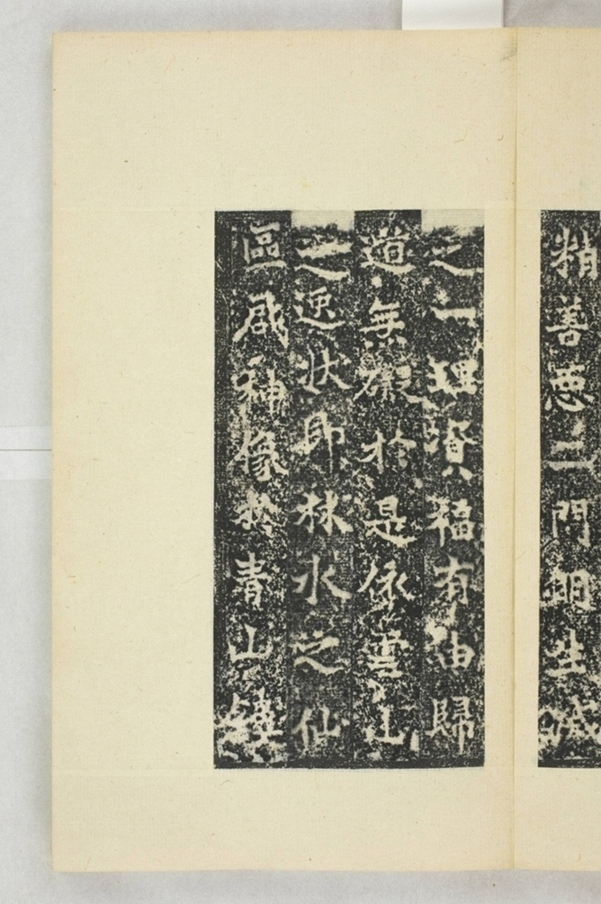 精善惡二門明生滅
之一理資福有由歸
道無於是依雲山
之逸狀即林水之仙
區啟神像於青山鐫